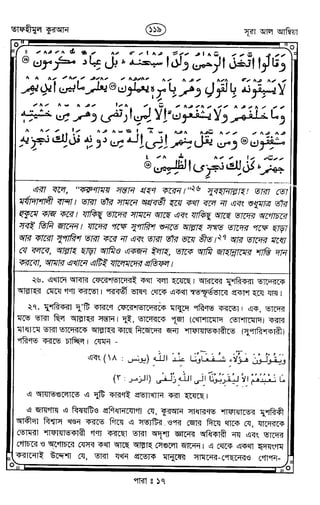 তাফহীমুল কুরআন
১১৯
সূরা আল আম্বিয়া
وَقَالُوا اتَّخَذَ الرَّحْمٰنُ وَلَدًا سُبْحٰنَهٗ ؕ بَلْ عِبَادٌ مُّكْرَمُوْنَ
لَا يَسْبِقُوْنَهٗ بِالْقَوْلِ وَهُمْ بِاَمْرِهٖ يَعْمَلُوْنَ يَعْلَمُ مَا بَيْنَ اَيْدِيْهِمْ
وَمَا خَلْفَهُمْ وَلَا يَشْفَعُوْنَ اِلَّا لِمَنِ ارْتَضٰى وَهُمْ مِّنْ خَشْيَتِهٖ
مُشْفِقُوْنَ وَمَنْ يَّقُلْ مِنْهُمْ اِنِّىْٓ اِلٰهٌ مِّنْ دُوْنِهٖ فَذٰلِكَ نَجْزِيْهِ
جَهَنَّمَ ؕ كَذٰلِكَ نَجْزِى الظّٰلِمِيْنَ
এরা বলে, “করুণাময় সন্তান গ্রহণ করেন।”২৬ সুবহানাল্লাহ! তারা তো
মর্যাদাশালী বান্দা। তারা তাঁর সামনে অগ্রবর্তী হয়ে কথা বলে না এবং শুধুমাত্র তাঁর
হুকুমে কাজ করে। যাকিছু তাদের সামনে আছে এবং যাকিছু আছে তাদের অগোচরে
সবই তিনি জানেন। যাদের পক্ষে সুপারিশ শুনতে আল্লাহ সম্মত তাদের পক্ষে ছাড়া
আর কারো সুপারিশ তারা করে না এবং তারা তাঁর ভয়ে ভীত।২৭ আর তাদের মধ্যে
যে বলবে, আল্লাহ ছাড়া আমিও একজন ইলাহ, তাকে আমি জাহান্নামের শাস্তি দান
করবো, আমার এখানে এটিই যালেমদের প্রতিফল।
২৬. এখানে আবার ফেরেশতাদেরই কথা বলা হয়েছে। আরবের মুশরিকরা তাদেরকে
আল্লাহর মেয়ে গণ্য করতো। পরবর্তী ভাষণ থেকে একথা স্বতস্ফূর্তভাবে প্রকাশ হয়ে যায়।
২৭. মুশরিকরা দু'টি কারণে ফেরেশতাদেরকে মাবুদে পরিণত করতো। এক, তাদের
মতে তারা ছিল আল্লাহর সন্তান। দুই, তাদেরকে পূজা (খোশামোদ তোশামোদ) করার
মাধ্যমে তারা তাদেরকে আল্লাহর কাছে নিজেদের জন্য শাফায়াতকারীতে (সুপারিশকারী)
পরিণত করতে চাচ্ছিল। যেমন -
وَيَقُوْلُوْنَ هٰٓؤُلَآءِ شُفَعَآؤُنَا عِنْدَ اللّٰهِ (يونس : ١٨) এবং
مَا نَعْبُدُهُمْ اِلَّا لِيُقَرِّبُوْنَآ اِلَى اللّٰهِ زُلْفٰى (الزمر : ٣)
এ আয়াতগুলোতে এ দুটি কারণই প্রত্যাখ্যান করা হয়েছে।
এ জায়গায় এ বিষয়টিও প্রণিধানযোগ্য যে, কুরআন সাধারণত শাফায়াতের মুশরিকী
আকীদা বিশ্বাস খণ্ডন করতে গিয়ে এ সত্যটির ওপর জোর দিয়ে থাকে যে, যাদেরকে
তোমরা শাফায়াতকারী গণ্য করছো তারা অদৃশ্য জ্ঞানের অধিকারী নয় এবং তাদের
গোচরে ও অগোচরে যেসব কথা আছে আল্লাহ সেগুলো জানেন। এ থেকে একথা হৃদয়ংগম
করানোই উদ্দেশ্য যে, তারা যখন প্রত্যেক মানুষের সামনের-পেছনেরও গোপন-
পারা : ১৭